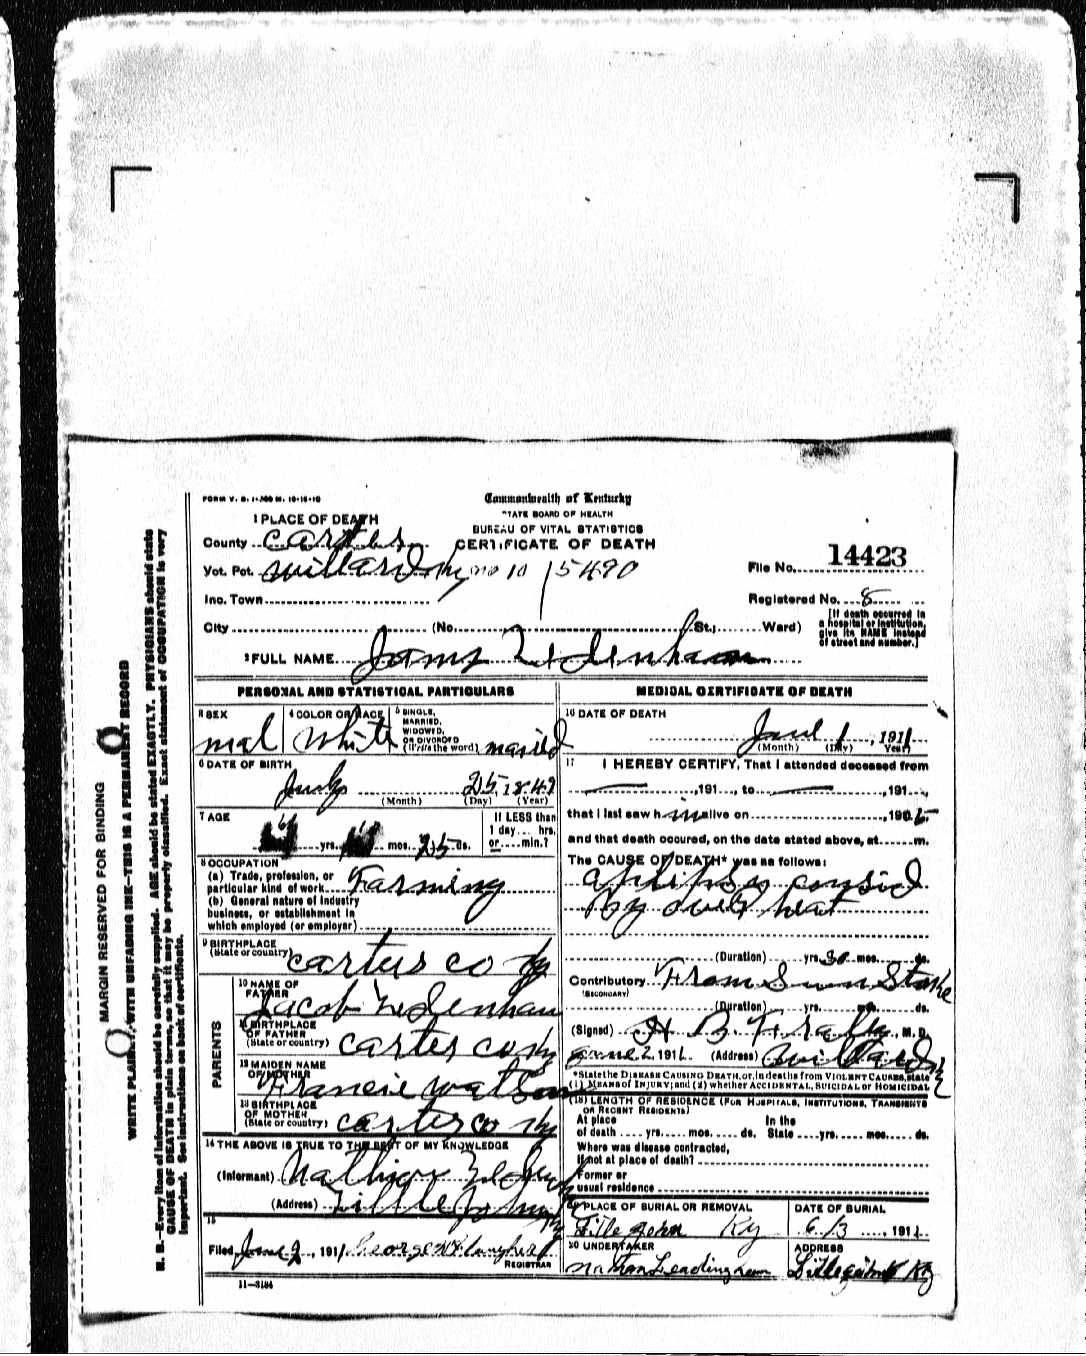 FORM V. S. 1-
Commonwealth of Kentucky
STATE BOARD OF HEALTH
BUREAU OF VITAL STATISTICS
CERTIFICATE OF DEATH
1 PLACE OF DEATH
County carters
Vot. Pct. willard Ky no 10 15490
Inc. Town
City (No. St.; Ward)
File No. 14423
Registered No. 8
[If death occurred in a hospital or institution, give its NAME instead of street and number.]
2 FULL NAME Jams
PERSONAL AND STATISTICAL PARTICULARS
3 SEX mal
4 COLOR OR RACE White
5 SINGLE, MARRIED, WIDOWED, OR DIVORCED (Write the word) maried
6 DATE OF BIRTH
July 25, 1849
(Month) (Day) (Year)
7 AGE
yrs. mos. 25 ds.
If LESS than 1 day... hrs. or....min.?
8 OCCUPATION
(a) Trade, profession, or particular kind of work Farming
(b) General nature of industry
business, or establishment in
which employed (or employer)
9 BIRTHPLACE
(State or country) carters co Ky
PARENTS
10 NAME OF FATHER Jacob
11 BIRTHPLACE OF FATHER
(State or country) carter co Ky
12 MAIDEN NAME OF MOTHER Francie watson
13 BIRTHPLACE OF MOTHER
(State or country) carter co Ky
14 THE ABOVE IS TRUE TO THE BEST OF MY KNOWLEDGE
(Informant)
(Address) Little John Ky
15
Filed June 2, 1911 George
REGISTRAR
11-3184
MEDICAL CERTIFICATE OF DEATH
16 DATE OF DEATH
1, 1911
(Month) (Day) Year)
17 I HEREBY CERTIFY, That I attended deceased from
,191..., to ,191...,
that I last saw h im alive on ,190
and that death occured, on the date stated above, at m.
The CAUSE OF DEATH* was as follows:
by over heat
(Duration) yrs. mos. ds.
Contributory From Sun Stroke
(SECONDARY)
(Duration) yrs. mos. ds.
(Signed) H B Fraley, M. D.
June 2, 1911 (Address) Willard Ky
*State the DISEASE CAUSING DEATH, or, in deaths from VIOLENT CAUSES, state
(1) MEANS of INJURY; and (2) whether ACCIDENTAL, SUICIDAL or HOMICIDAL
(18) LENGTH OF RESIDENCE (FOR HOSPITALS, INSTITUTIONS, TRANSIENTS
OR RECENT RESIDENTS)
At place of death .... yrs. .... mos. .... ds. In the State .... yrs. .... mos. .... ds.
Where was disease contracted,
If not at place of death?
Former or
usual residence
19 PLACE OF BURIAL OR REMOVAL
Little John Ky
DATE OF BURIAL
6/3, 1911
20 UNDERTAKER
Nathan Leadingham
ADDRESS
Ky
MARGIN RESERVED FOR BINDING
WRITE PLAINLY, WITH UNFADING INK—THIS IS A PERMANENT RECORD
N. B.—Every item of information should be carefully supplied. AGE should be stated EXACTLY. PHYSICIANS should state
CAUSE OF DEATH in plain terms, so that it may be properly classified. Exact statement of OCCUPATION is very
important. See instructions on back of certificate.